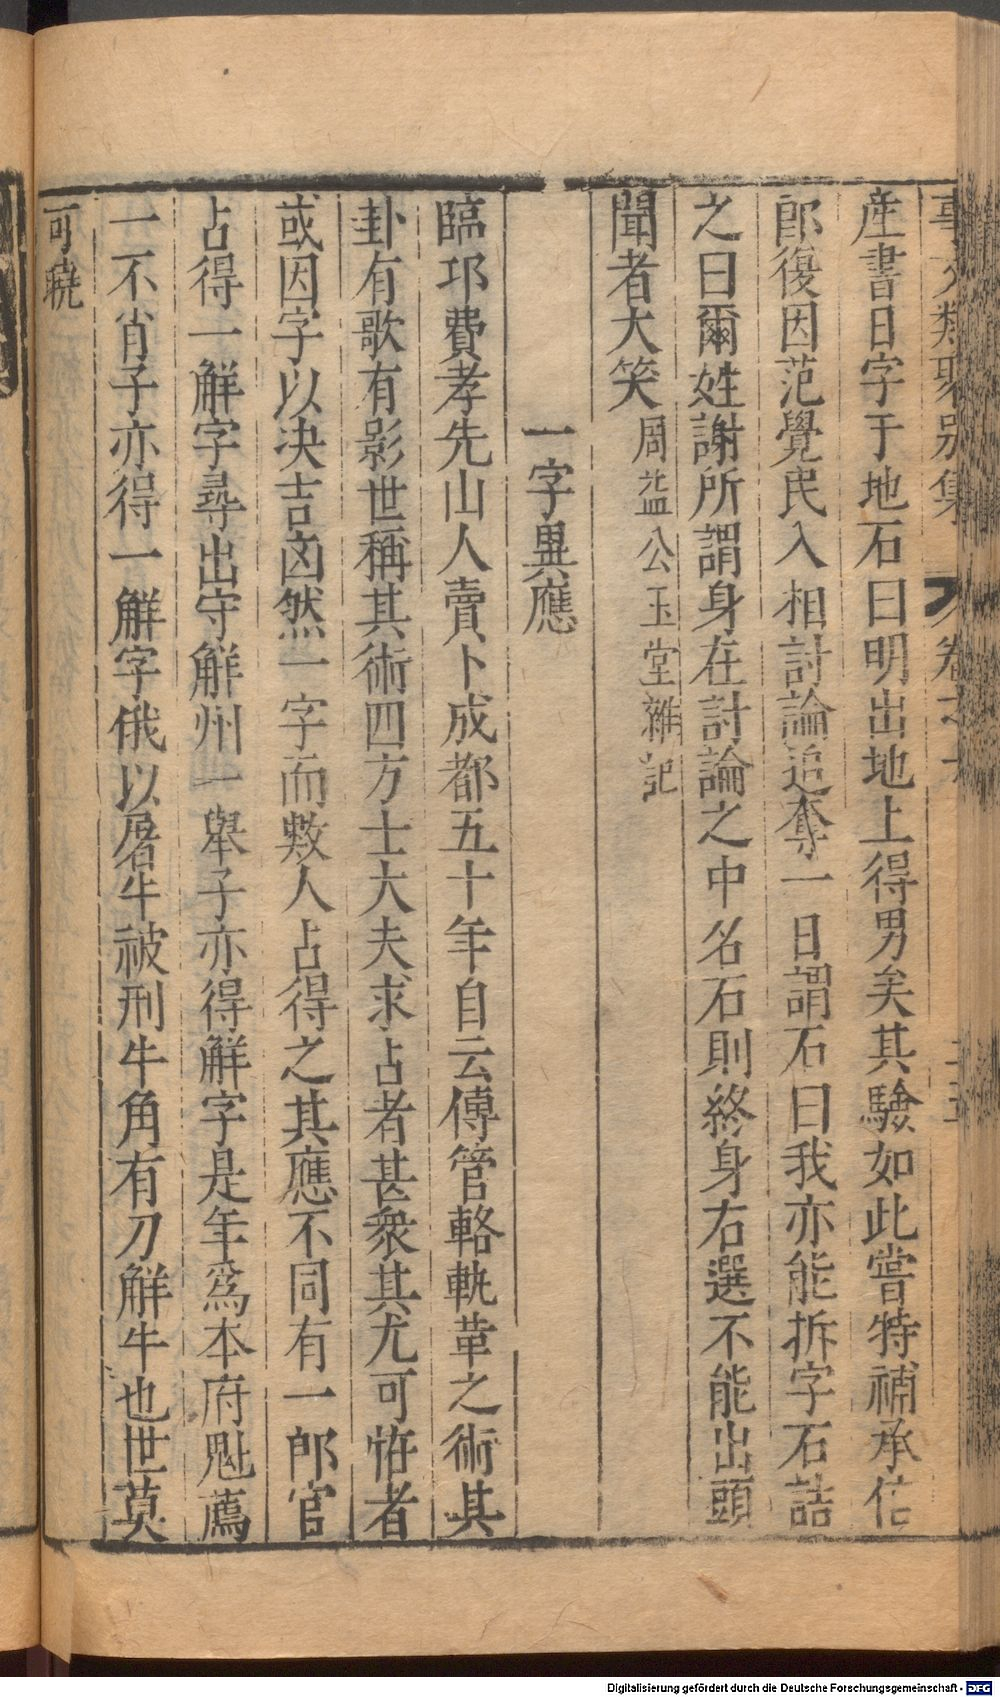 事文類聚別集 卷之十
產書日字于地石曰明出地上得男矣其驗如此嘗特補承信
郎復因范覺民入相討論追奪一日謂石曰我亦能拆字石詰
之曰爾姓謝所謂身在討論之中名石則終身右選不能出頭
聞者大笑 周益公玉堂雜記
一字異應
臨邛費孝先山人賣卜成都五十年自云傳管輅軌革之術其
卦有歌有影世稱其術四方士大夫求占者甚衆其尤可恠者
或因字以決吉凶然一字而數人占得之其應不同有一郎官
占得一觧字尋出守觧州一舉子亦得觧字是年爲本府魁薦
一不肖子亦得一觧字俄以屠牛被刑牛角有刀觧牛也世莫
可曉
Digitalisierung gefördert durch die Deutsche Forschungsgemeinschaft - DFG